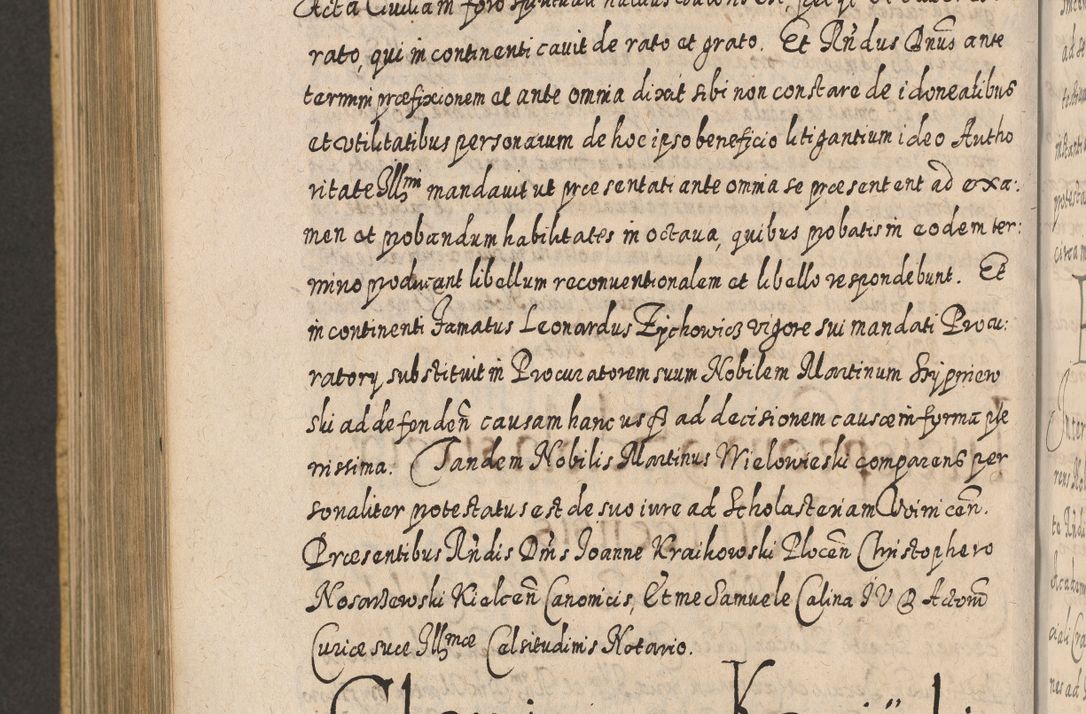 Acta
rato, qui in continenti cavit de rato et grato. Et Rñdus Dnus ante
termini præfixionem et ante omnia dixit sibi non constare de idoneatibus
et utilitatibus personarum de hoc ipso beneficio litigantium ideo Autho
ritate Illmi mandavit ut præsentati ante omnia se præsentent ad exa:
men et probandum habilitates in octava, quibus probatis in eodem ter:
mino producant libellum reconventionalem et libello respondebunt. Et
in continenti Famatus Leonardus Zychowicz vigore sui mandati Procu:
ratory substituit in Procuratorem suum Nobilem Martinum Skrypniew
ski ad defendeñ causam hanc usq ad decisionem causæ in forma ple
nissima. Tandem Nobilis Martinus Wielowieski comparens per
sonaliter protestatus est de suo iure ad Scholasteriam Voiniceñ.
Præsentibus Rñdis Dñis Joanne Kraikowski Ploceñ Christophero
Nosarzewski Kielceñ Canonicis, Et me Samuele Calina IUD Actorum
Curiæ suæ Illmæ Celsitudinis Notario.